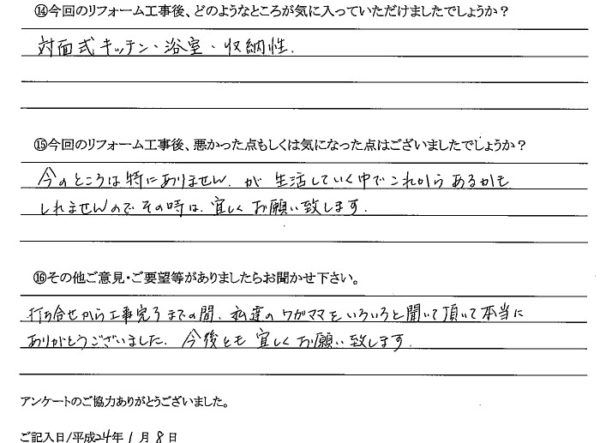 ⑭今回のリフォーム工事後、どのようなところが気に入っていただけましたでしょうか?
対面式キッチン・浴室・収納性.
⑮今回のリフォーム工事後、悪かった点もしくは気になった点はございましたでしょうか?
今のところは特にありません.が 生活していく中でこれからあるかも
しれませんのでその時は、宜しくお願い致します.
⑯その他ご意見・ご要望等がありましたらお聞かせ下さい。
打ち合せから工事完了までの間、私達のワガママをいろいろと聞いて頂いて本当に
ありがとうございました.今後とも宜しくお願い致します.
アンケートのご協力ありがとうございました。
ご記入日/平成24年1月8日